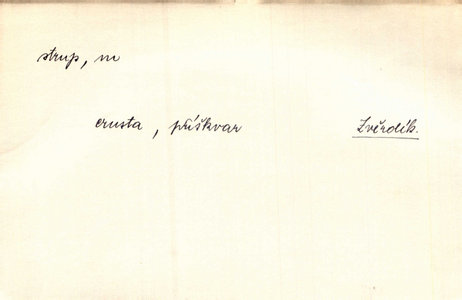 strup, m
crusta, příškvar Zvěrolék.